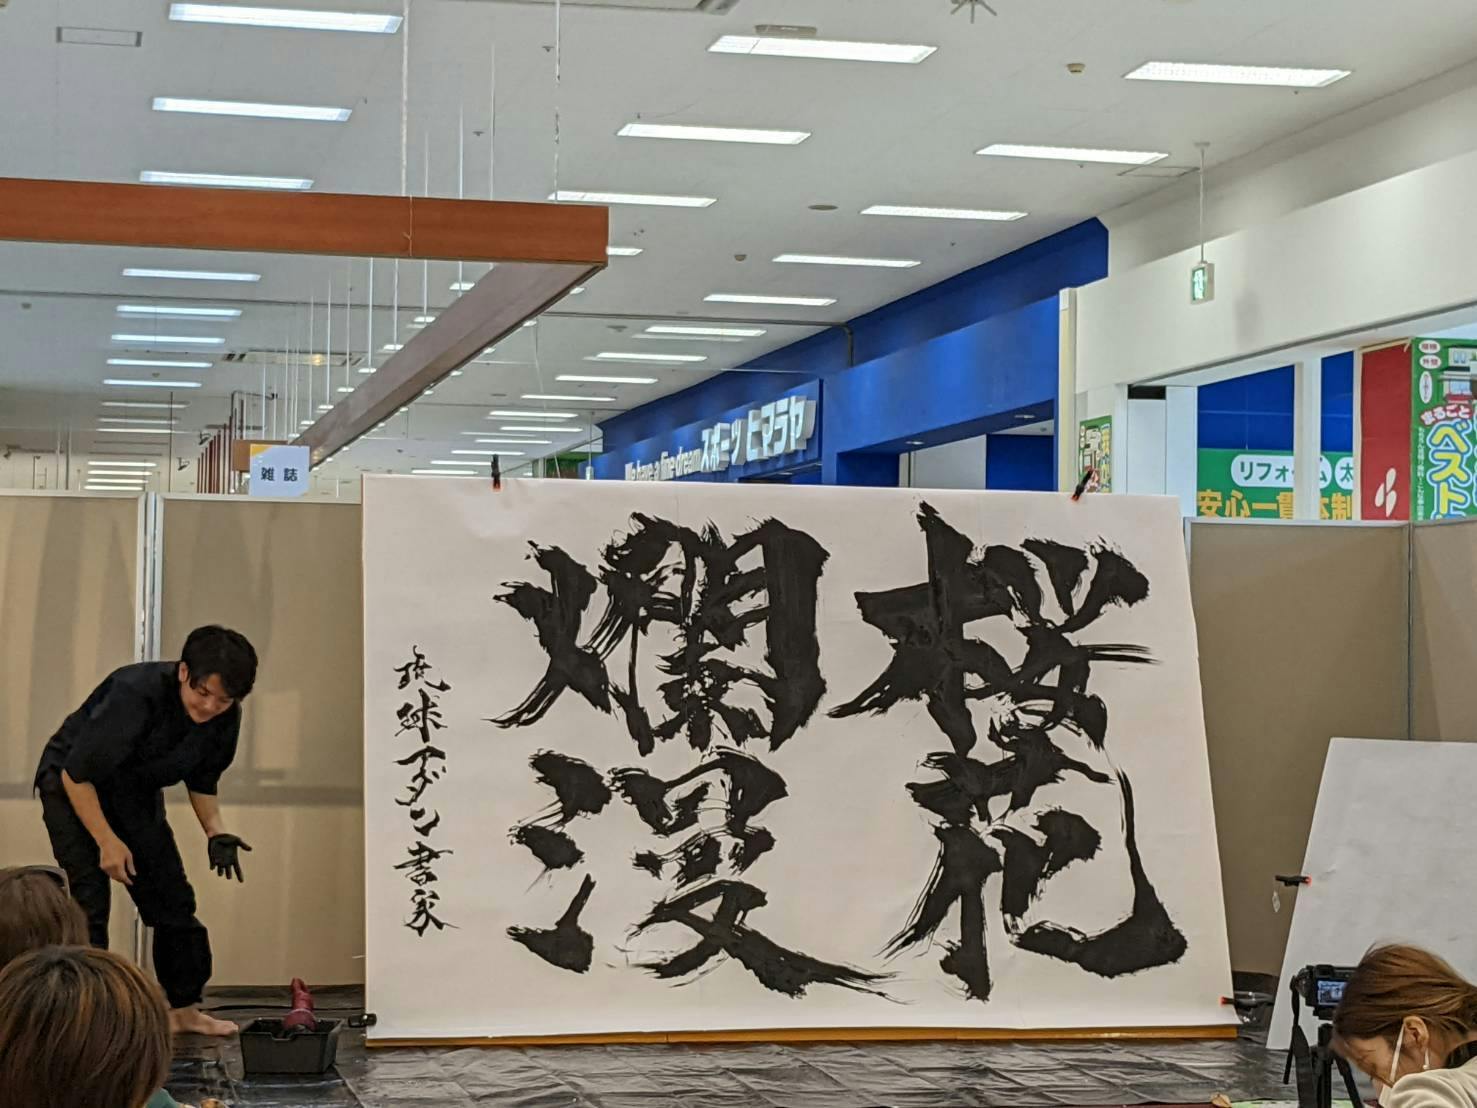 桜花
爛漫
琉球アダン書家
雑誌
We have a fine dream スポーツ ヒマラヤ
リフォーム 太
安心一貫体制
まるごと
ベスト